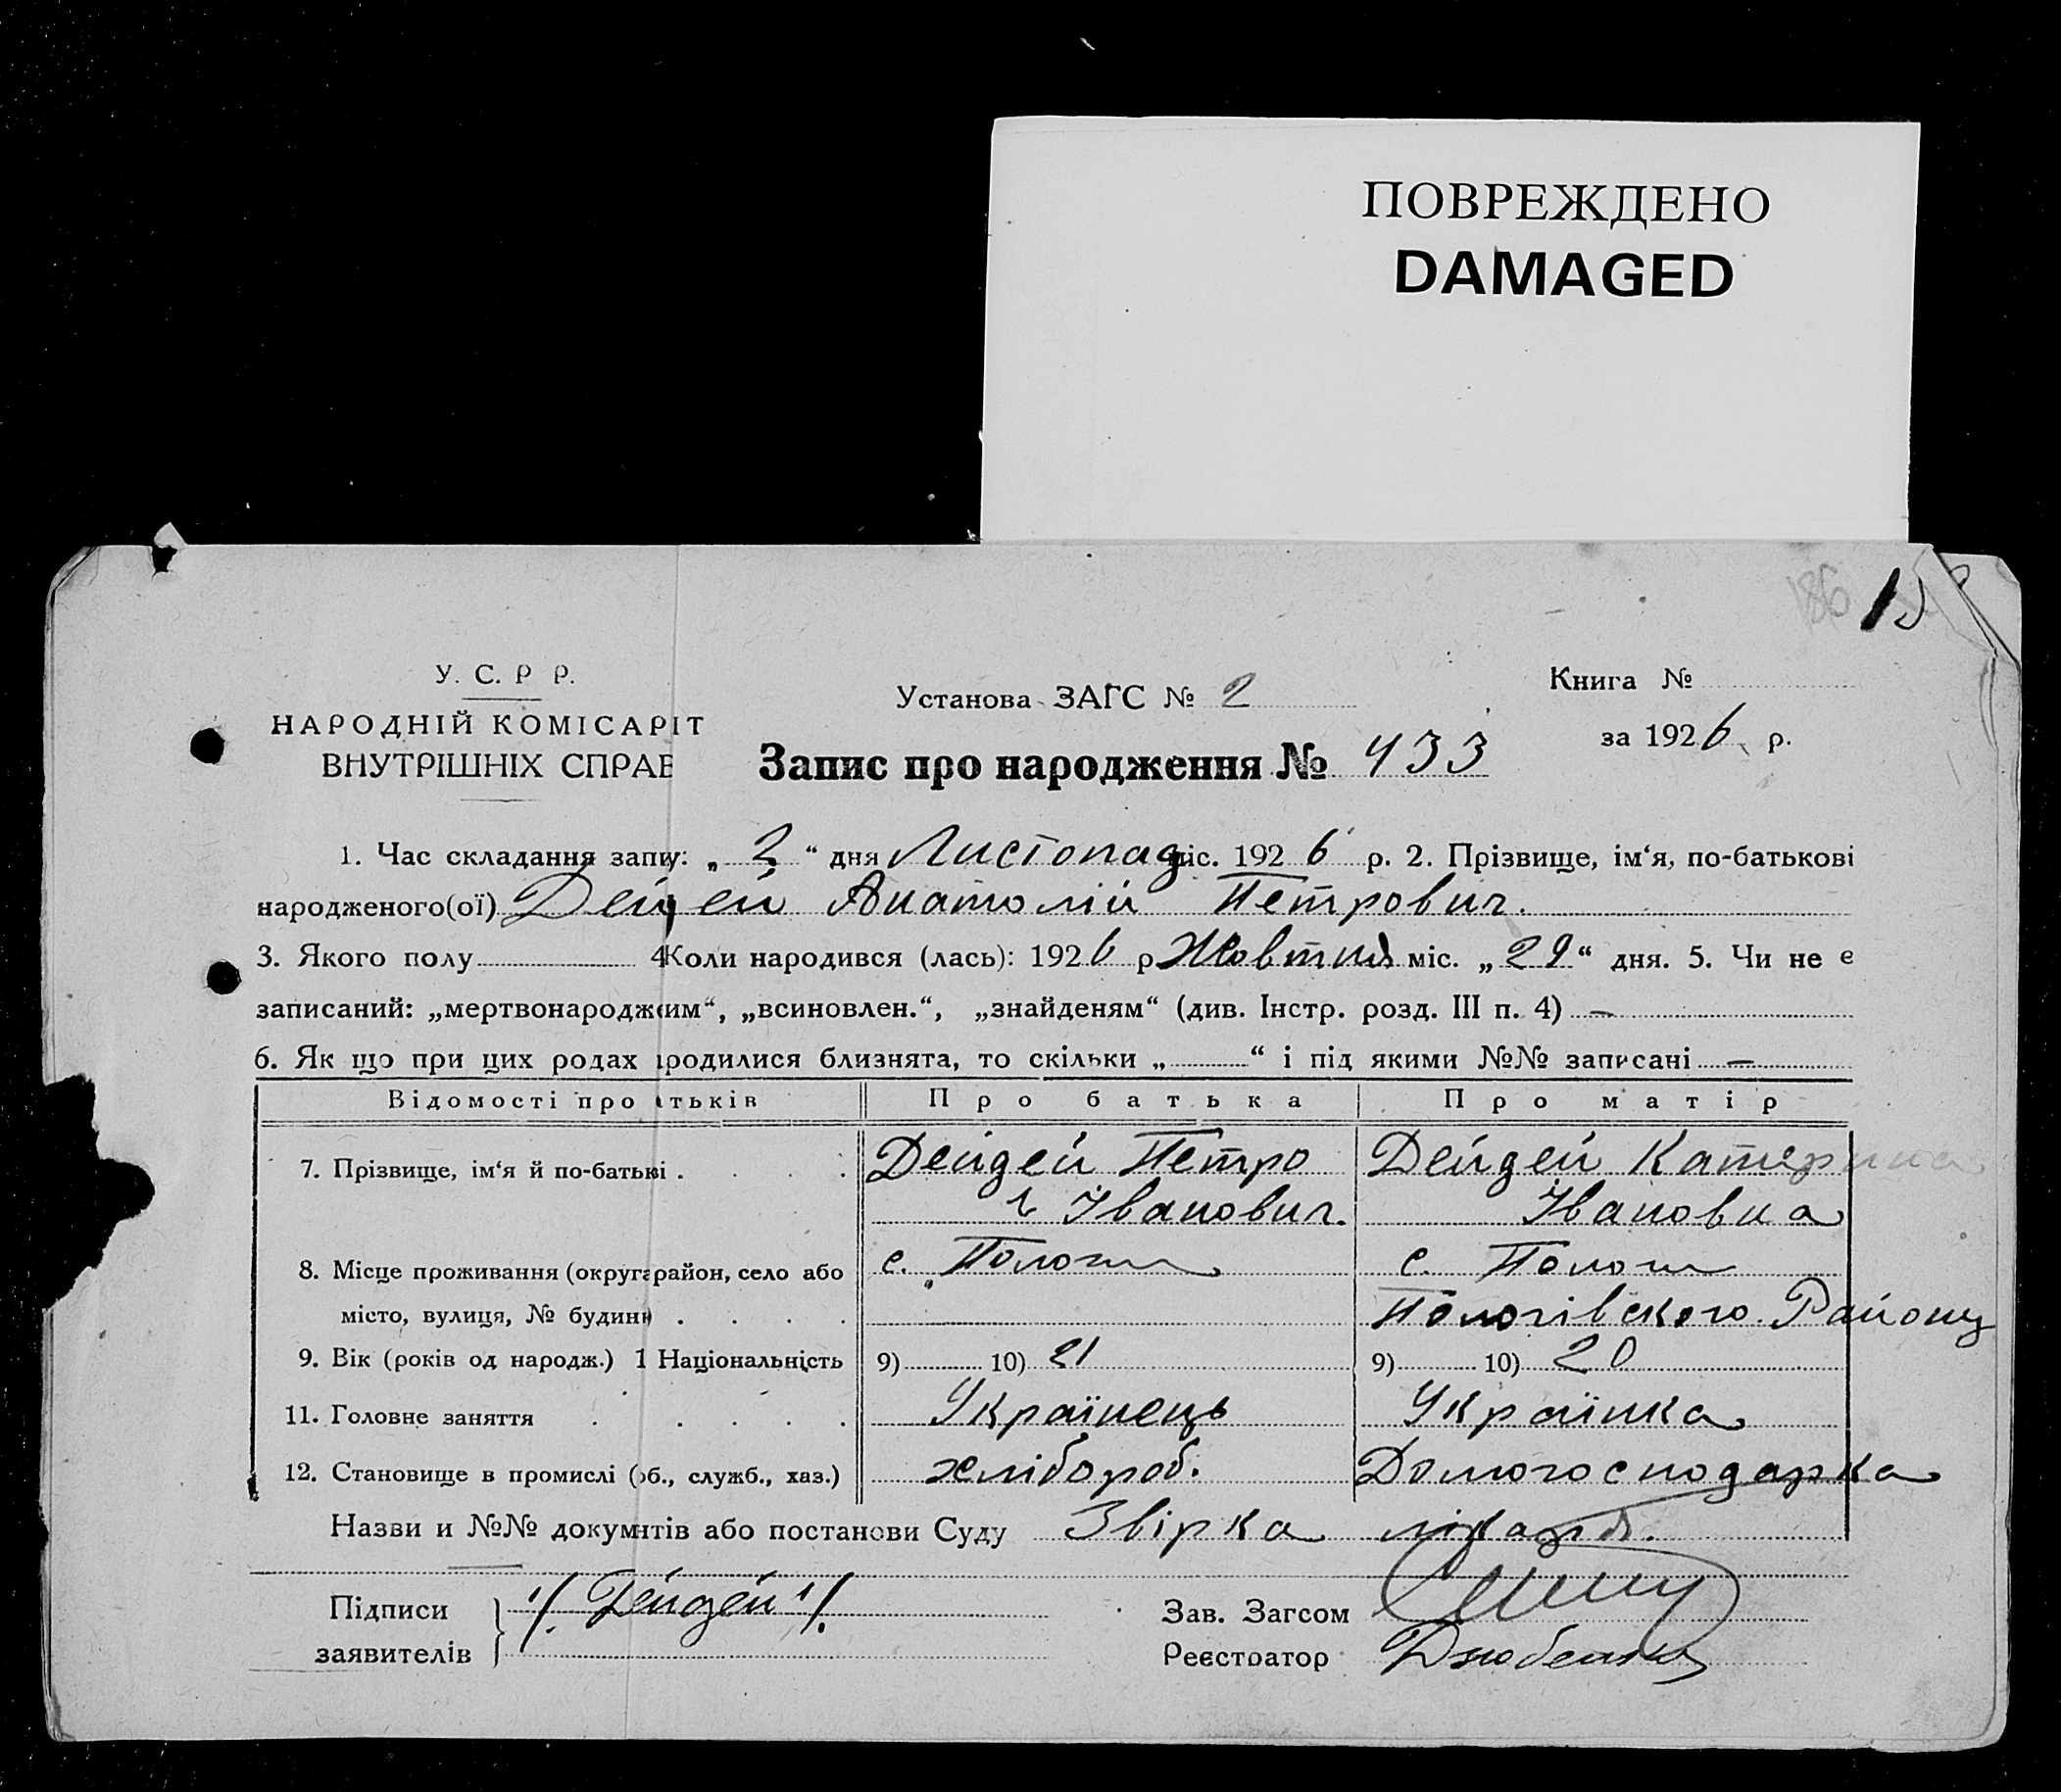 ПОВРЕЖДЕНО
DAMAGED
186
У. С. Р Р.
НАРОДНІЙ КОМІСАРІТ
ВНУТРІШНІХ СПРАВ
Установа ЗАГС № 2
Книга №
за 1926 р.
Запис про народження № 433
1. Час складання запису: „ 2 “ дня Листопад міс. 1926 р. 2. Прізвище, ім‘я, по-батькові
народженого(ої) Дейдей Анатолій Петрович.
3. Якого полу 4 Коли народився (лась): 1926 р Жовтня міс. „ 29 “ дня. 5. Чи не є
записаний: „мертвонароджеим“, „всиновлен.“, „знайденям“ (див. Інстр. розд. III п. 4) —
6. Як що при цих родах родилися близнята, то скільки „ “ і під якими №№ записані —
Відомості про тьків Про батька Про матір
7. Прізвище, ім‘я й по-батьві Дейдей Петро Дейдей Катерина
Іванович. Івановна
8. Місце проживання (округа район, село або с. Пологи с. Пологи
місто, вулиця, № будинк Пологівского Району
9. Вік (років од народж.) 1 Національність 9) 10) 21 9) 10) 20
11. Головне заняття Українець Українка
12. Становище в промислі (об., служб., хаз.) хлібороб. Домогосподарка
Назви и №№ документів або постанови Суду Звірка лікаря.
Підписи
заявителів
/ Дейдей /.
Зав. Загсом
Реєстратор